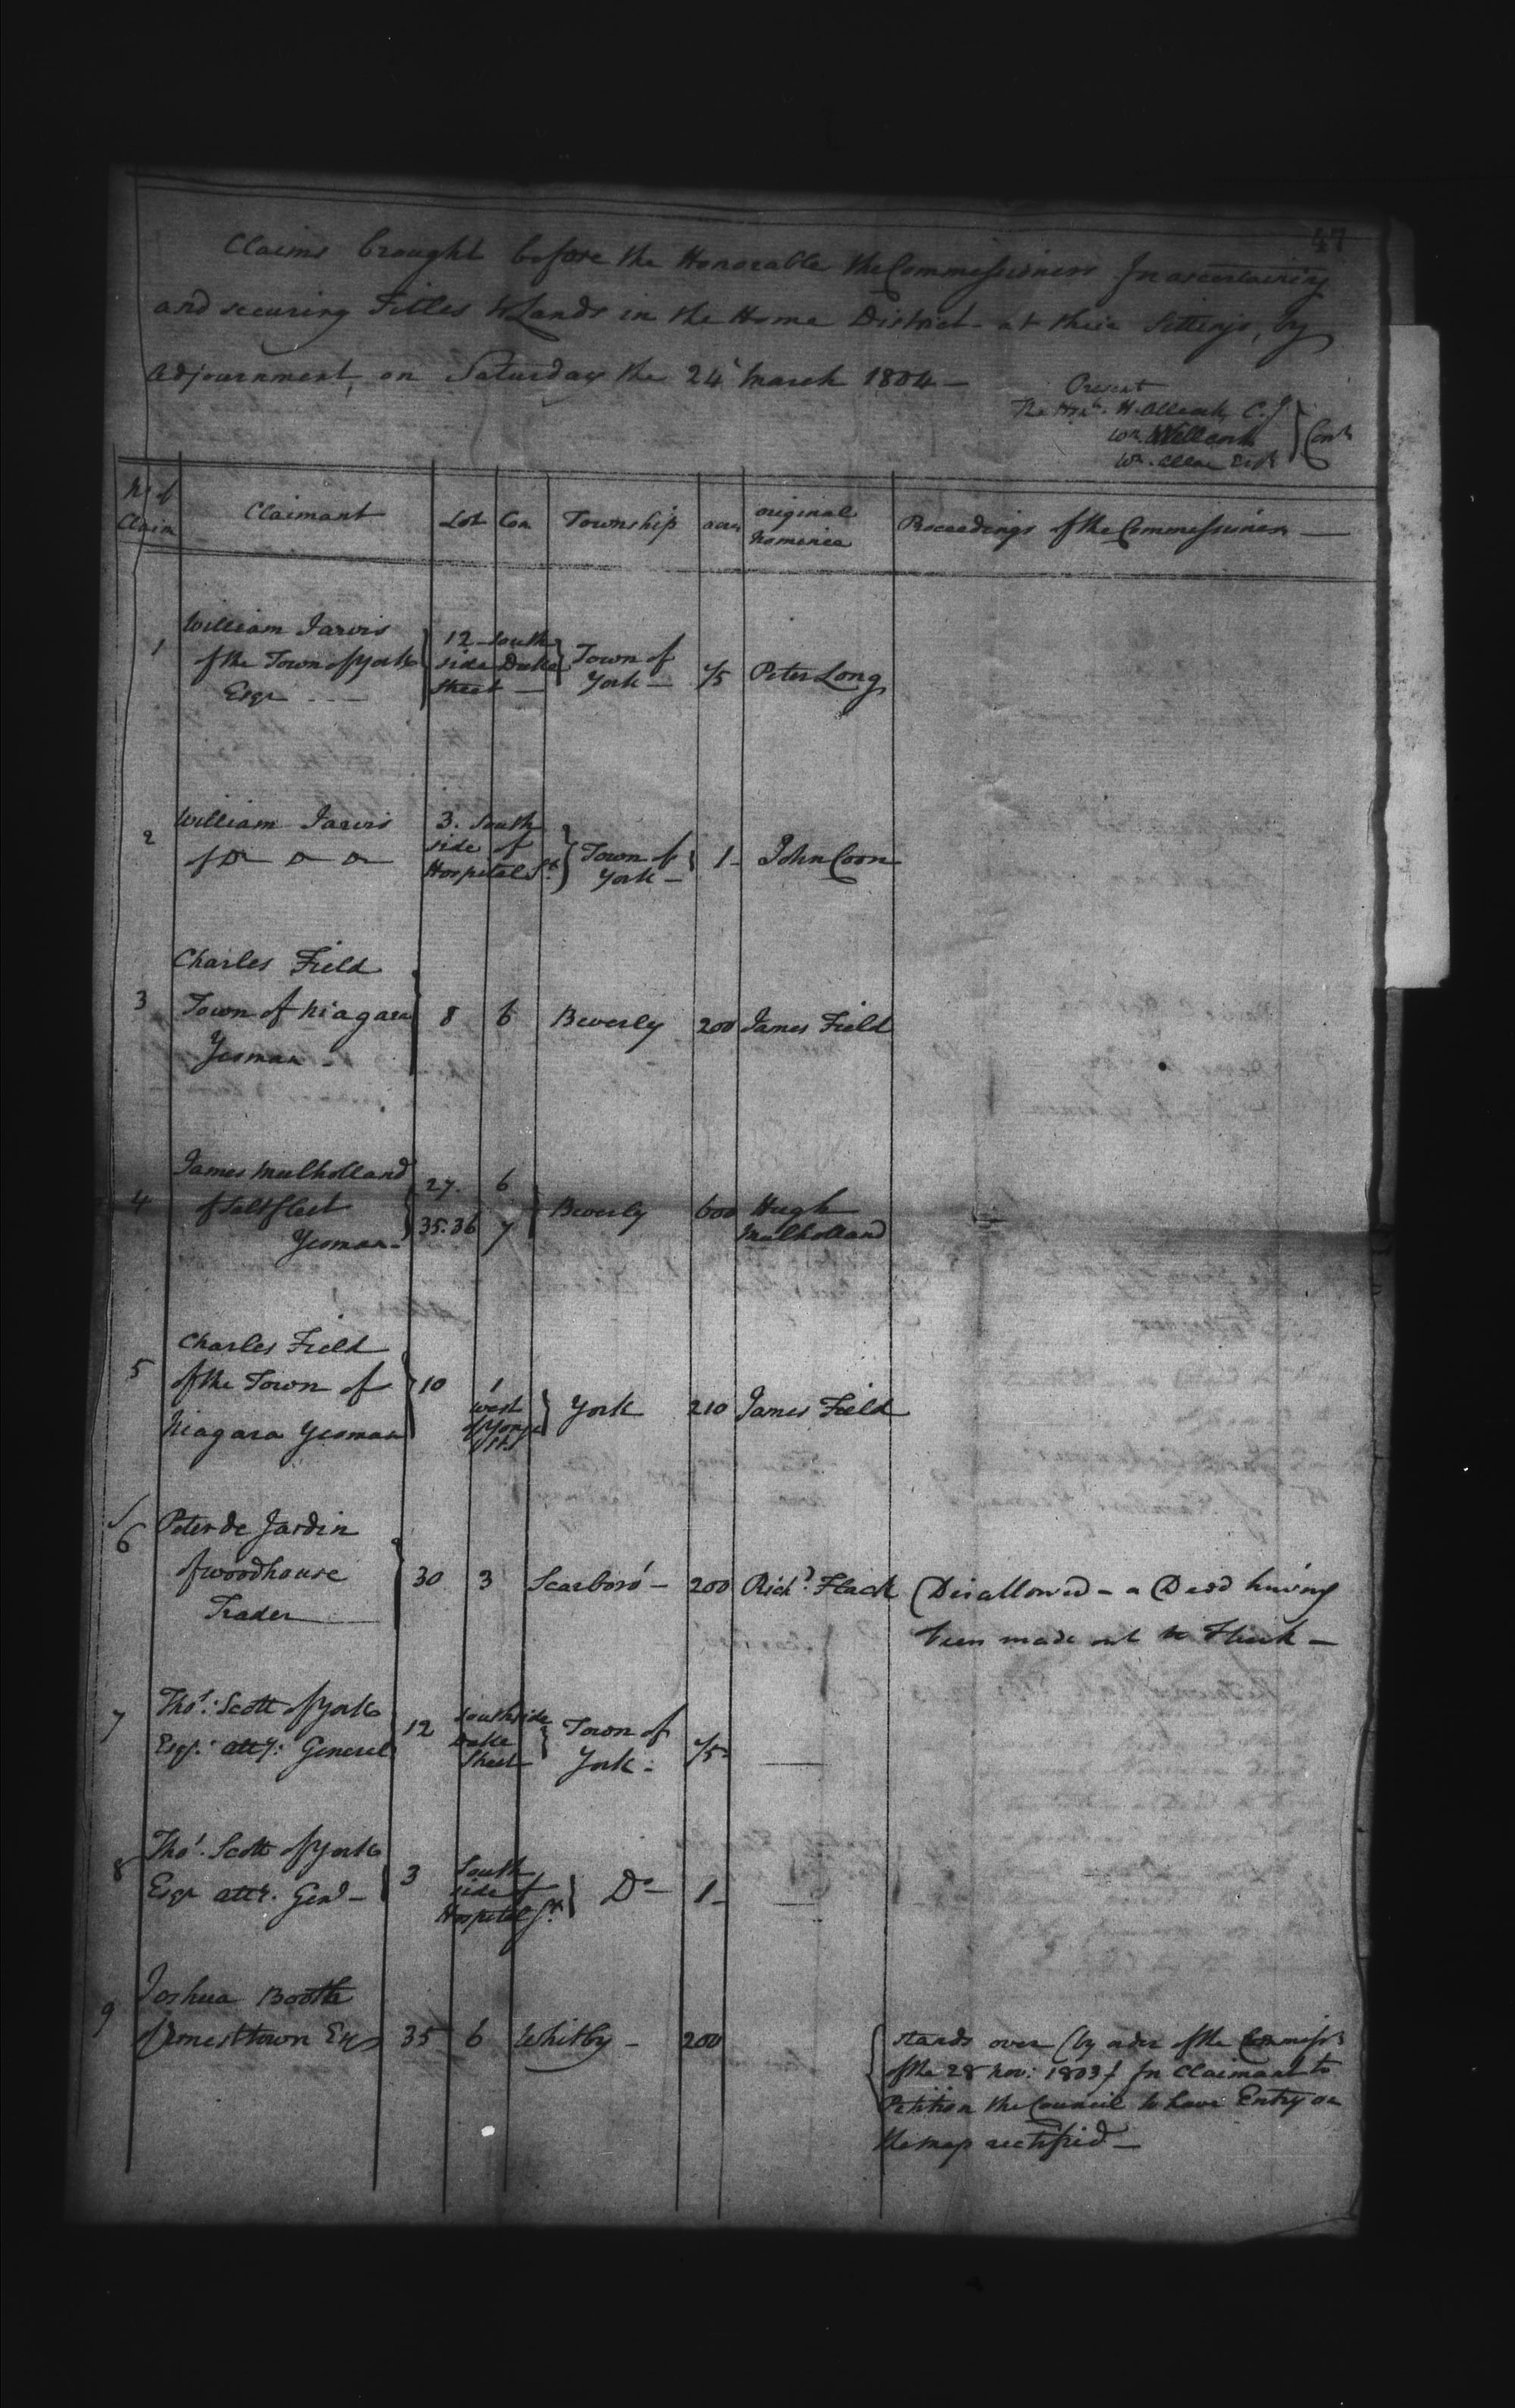 47
Claims brought before the Honorable the Commissioners for ascertaining
and securing Titles to Lands in the Home District at their Sittings, by
adjournment, on Saturday the 24 March 1804 —
Present
The Honb. H. Allcock C. J.
Wm. Willcocks
Wm. Allan Esqr
No. of
Claim
Claimant
Lot
Con
Township
acres
original
Nominee
Proceedings of the Commissioners —
1
William Jarvis
of the Town of York
Esqr - - —
12 South
side Duke
Street —
Town of
York —
1/5
Peter Long
2
William Jarvis
of Do Do Do
3. South
side of
Hospital St.
Town of
York —
1 -
John Coon
3
Charles Field
Town of Niagara
Yeoman -
8
6
Beverly
200
James Field
4
James Mulholland
of Saltfleet
Yeoman -
27.
35.36
6
7
Beverly
600
Hugh
Mulholland
5
Charles Field
of the Town of
Niagara Yeoman
10
1
west
of Yonge
St.
York
210
James Field
6
Peter de Jardin
of Woodhouse
Trader —
30
3
Scarboro' —
200
Richd. Flack
Disallowed - a Deed having
been made out to Flack —
7
Thos. Scott of York
Esqr. atty. General
12
South side
Duke
Street
Town of
York -
1/5
—
8
Thos. Scott of York
Esqr atty. Genl -
3
South
side of
Hospital St.
Do —
1 -
—
9
Joshua Booth
of Ernesttown Esqr
35
6
Whitby -
200
stands over (by order of the Commissrs
of the 28 Nov: 1803) for Claimant to
Petition the Council to have Entry on
the map rectified —